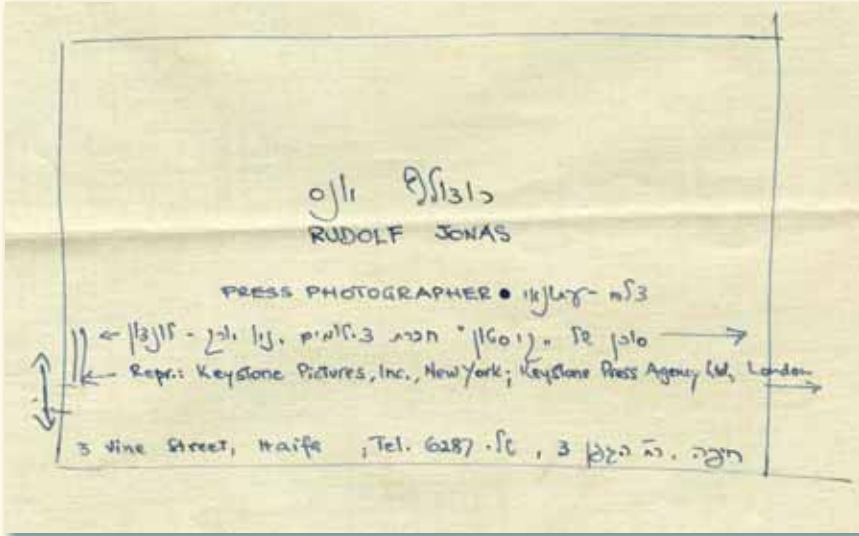 רודולף יונס
RUDOLF JONAS
PRESS PHOTOGRAPHER • צלם-עתונאי
סוכן של "קיסטון" חברת צילומים, ניו יורק - לונדון
Repr.: Keystone Pictures, Inc., New York; Keystone Press Agency Ltd, London
3 Vine Street, Haifa , Tel. 6287 .טל , חיפה, רח' הגפן 3